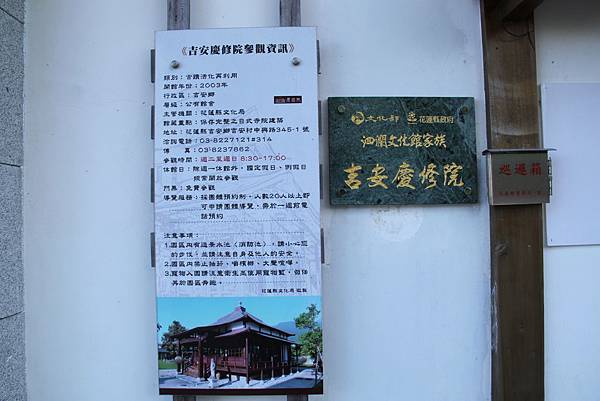 《吉安慶修院參觀資訊》
類別：古蹟活化再利用
開館年份：2003年
行政區：吉安鄉
屬級：公有館舍
主管機關：花蓮縣文化局
館藏重點：保存完整之日式寺院建築
地址：花蓮縣吉安鄉吉安村中興路345-1 號
洽詢電話：03-8227121#314
傳 真：03-8237862
參觀時間：週二至週日 8:30-17:00
休館日：除週一休館外，國定假日、例假日
照常開放參觀
門票：免費參觀
導覽服務：採團體預約制，人數20人以上即
可申請團體導覽，需於一週前電
話預約
注意事項：
1.園區內有造景水池（消防池），請小心您
的步伐，並請注意自身及他人的安全。
2.園區內禁止抽菸、嚼檳榔、大聲喧嘩。
3.寵物入園請注意衛生並使用寵物籃，勿任
其於園區奔跑。
花蓮縣文化局
文化部 花蓮縣政府
洄瀾文化館家族
吉安慶修院
巡邏箱